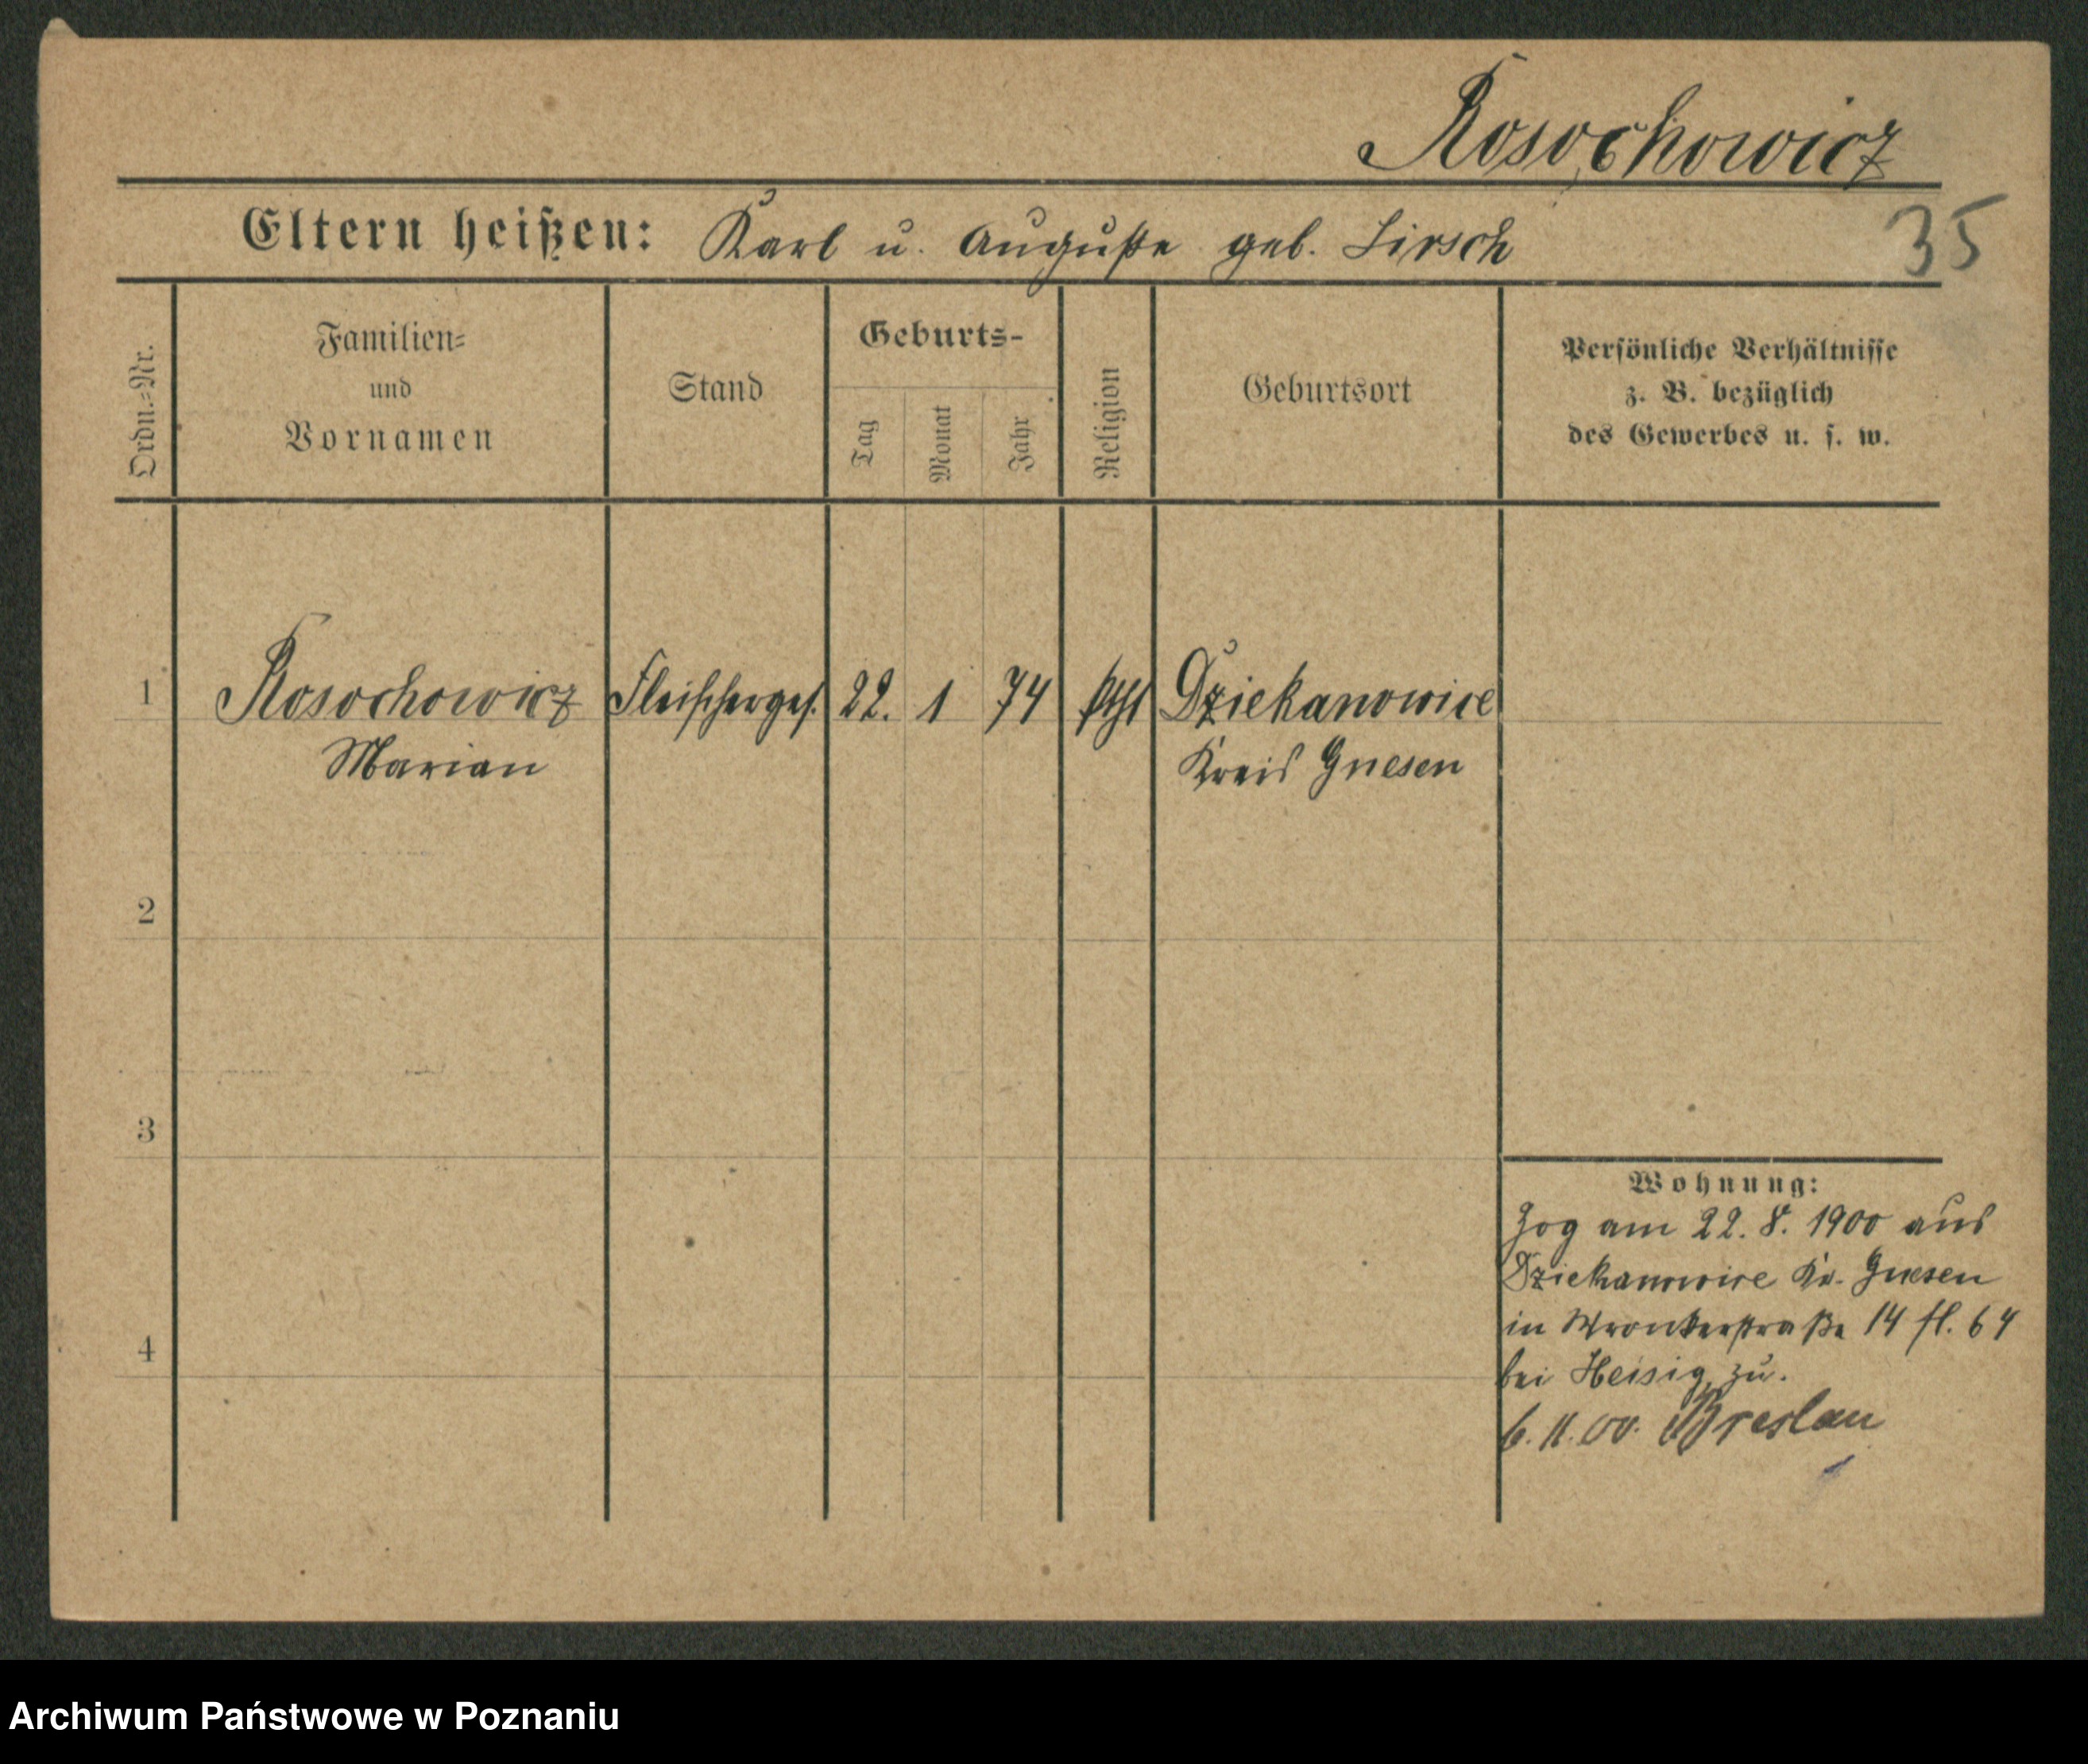 Rosochowicz
Eltern heißen: Karl u. Auguste geb. Lirsch
35
Ordn.=Nr.
Familien=
und
Vornamen
Stand
Geburts-
Tag
Monat
Jahr
Religion
Geburtsort
Persönliche Verhältnisse
z. B. bezüglich
des Gewerbes u. s. w.
1 Rosochowicz Fleischerges. 22. 1 74 kth Dziekanowice
Marian Kreis Gnesen
2
3
4
Wohnung:
Zog am 22. 8. 1900 aus
Dziekanowice Kr. Gnesen
in Wronkerstraße 14 fl. 64
bei Heisig zu.
6. 11. 00. Breslau
Archiwum Państwowe w Poznaniu